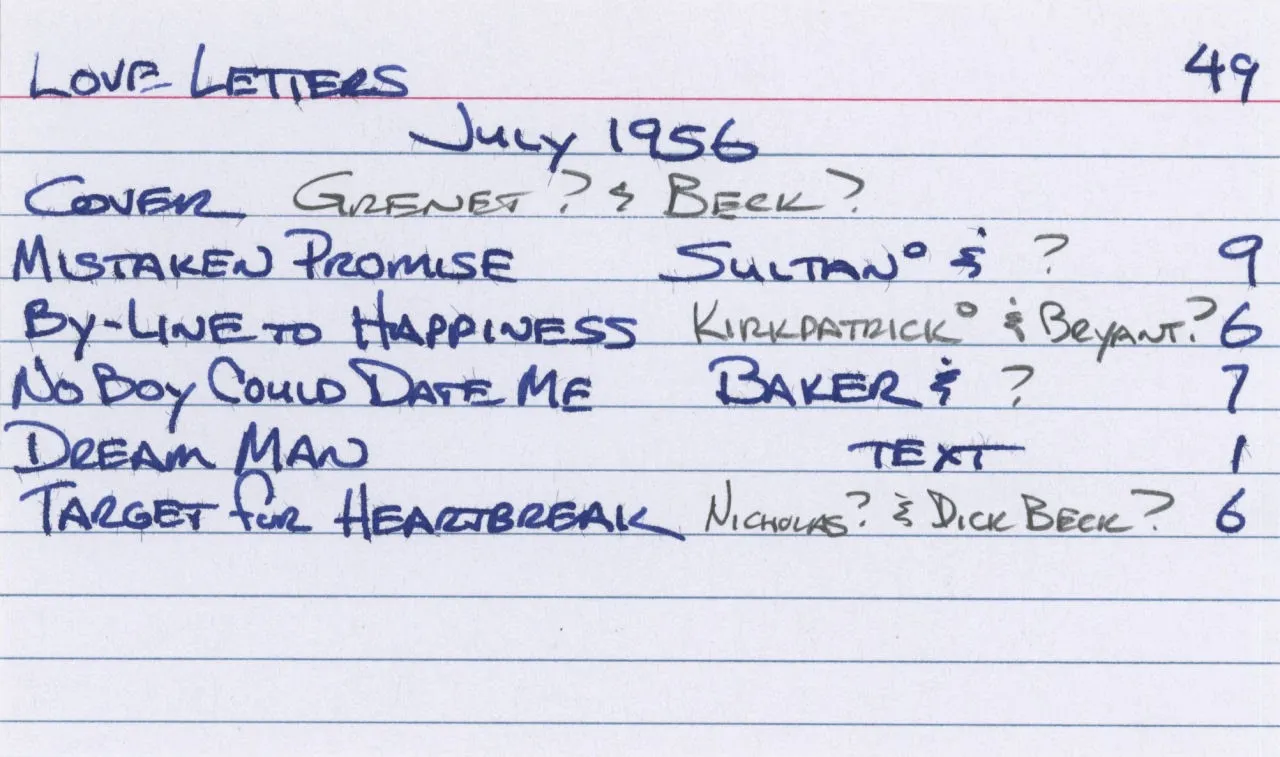 LOVE LETTERS 49
JULY 1956
COVER GRENET? & BECK?
MISTAKEN PROMISE SULTAN° & ? 9
BY-LINE TO HAPPINESS KIRKPATRICK° & BRYANT? 6
NO BOY COULD DATE ME BAKER & ? 7
DREAM MAN TEXT 1
TARGET FOR HEARTBREAK NICHOLAS? & DICK BECK? 6